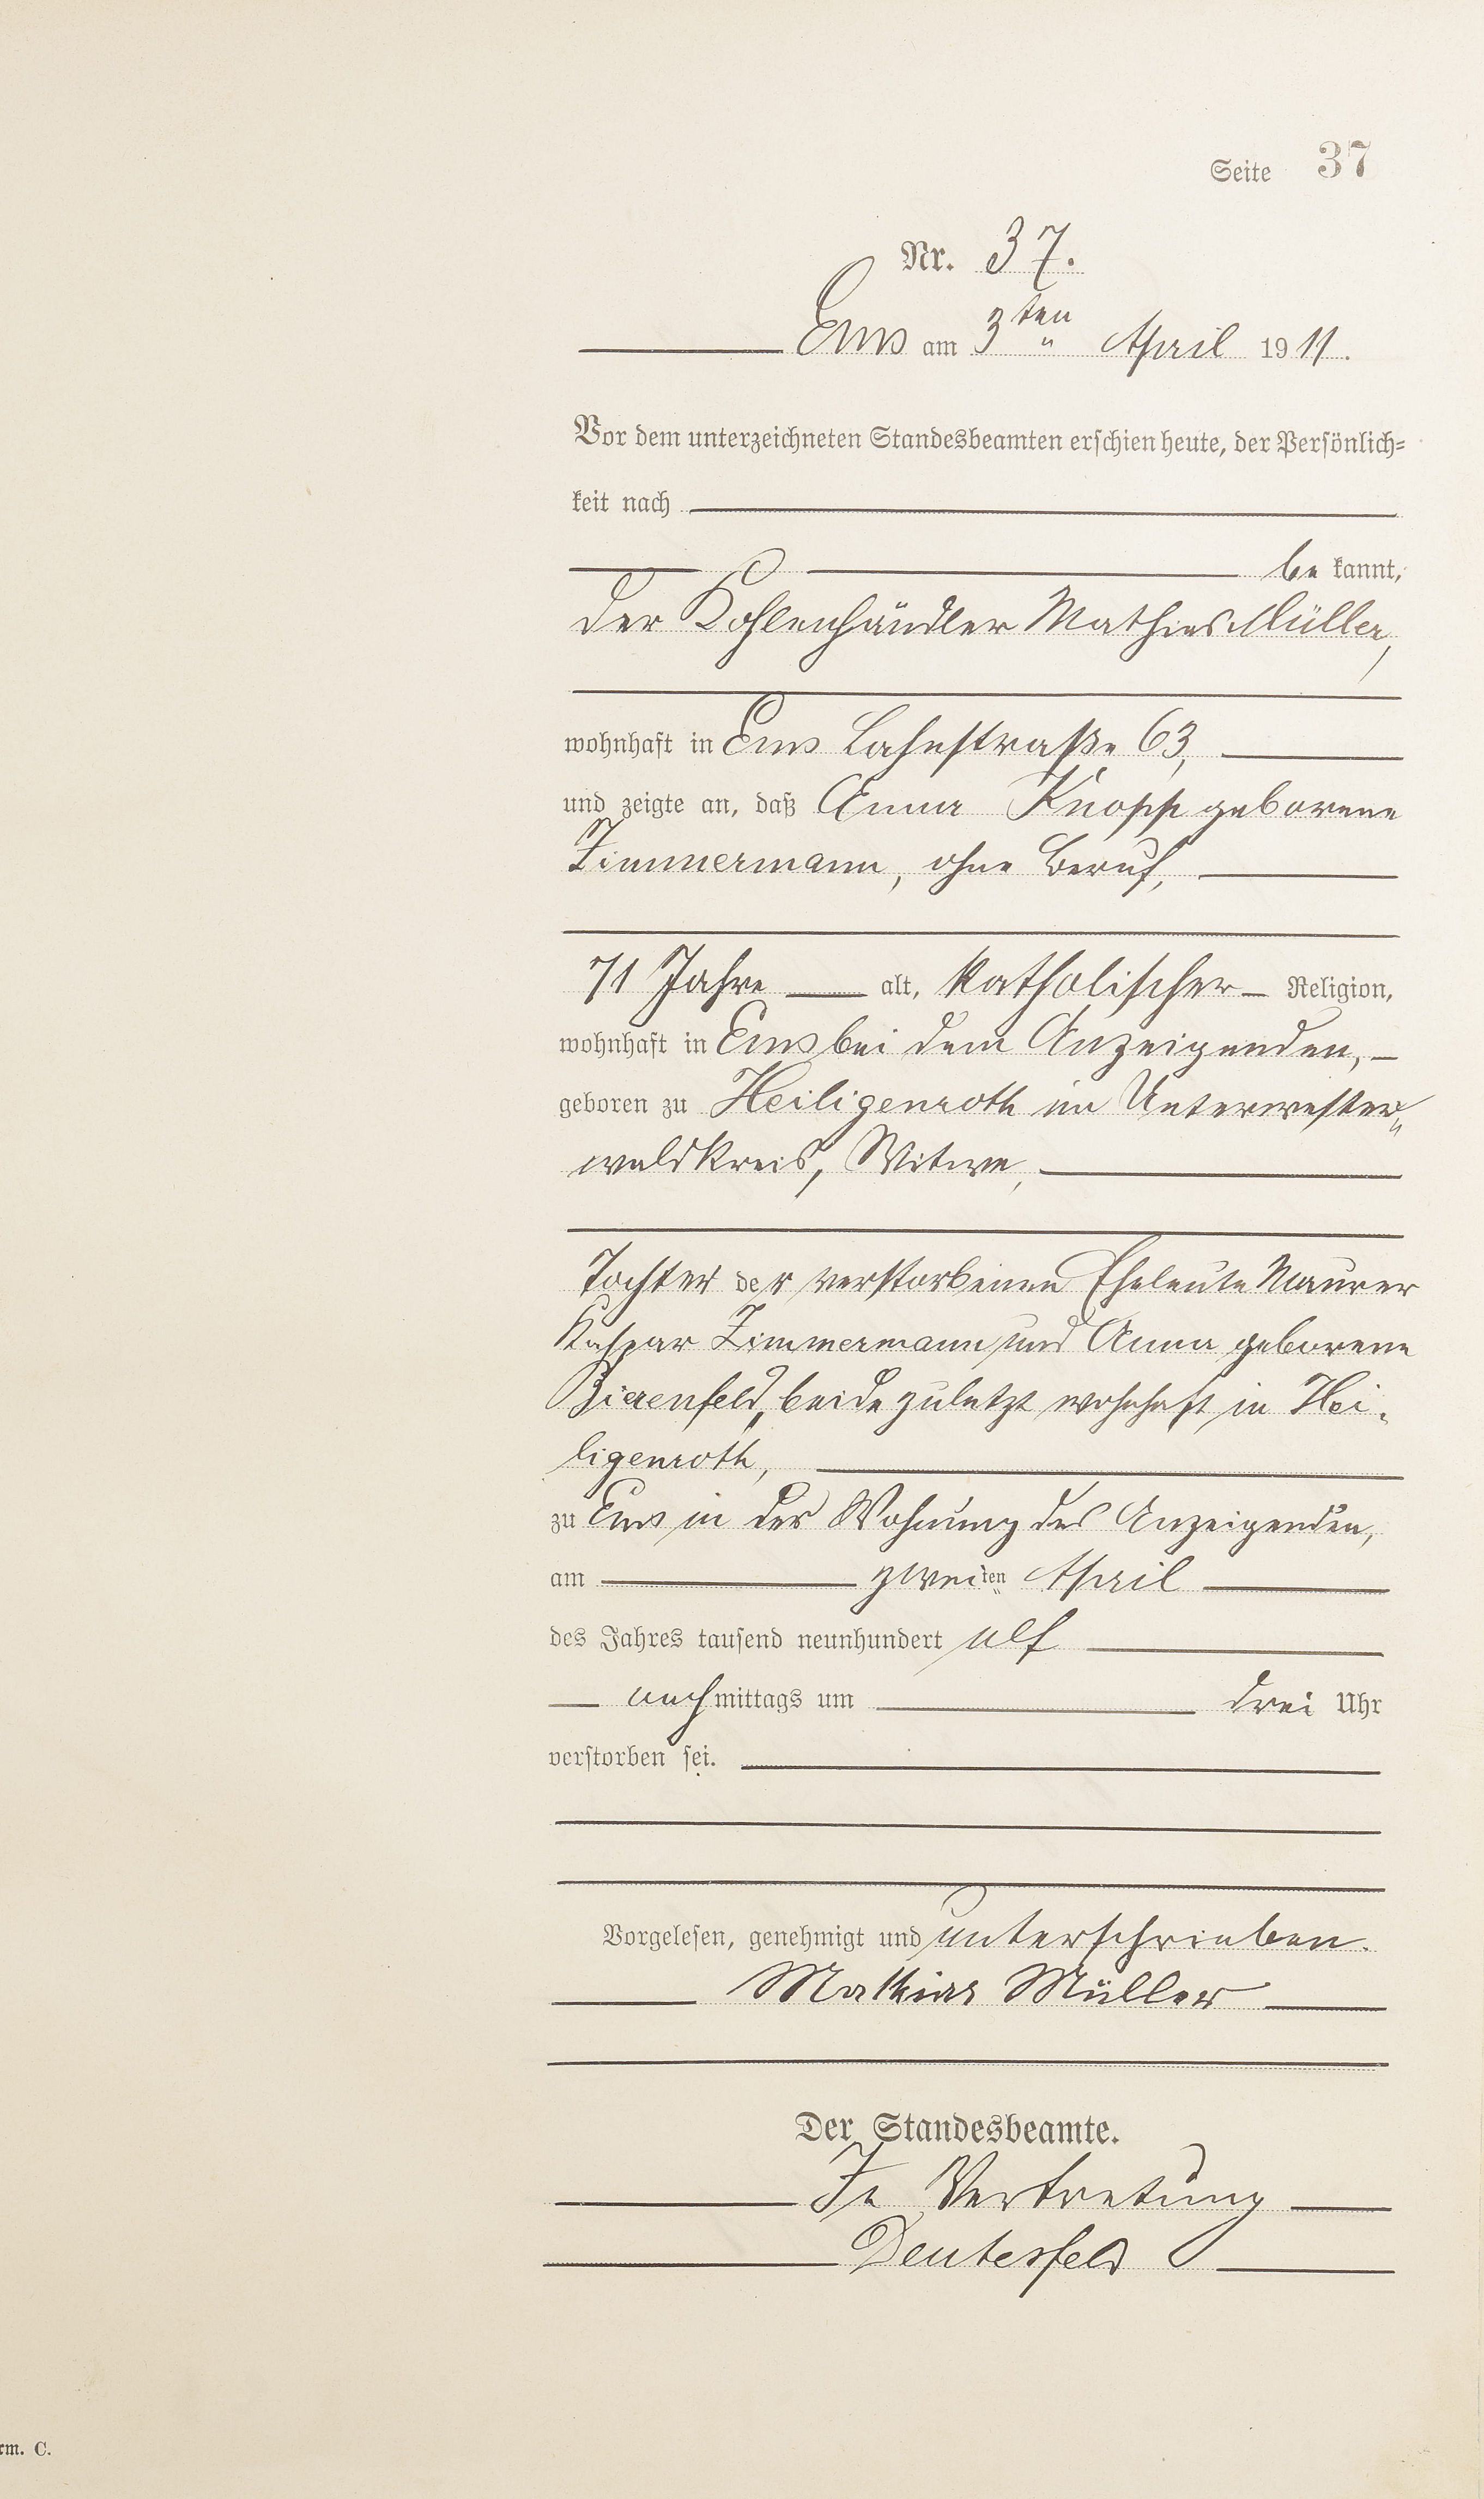 Seite 37
Nr. 37.
Ems am 3ten April 1911.
Vor dem unterzeichneten Standesbeamten erschien heute, der Persönlich-
keit nach
bekannt,
der Kohlenhändler Mathias Müller,
wohnhaft in Ems Lahnstraße 63,
und zeigte an, daß Anna Knopp geborene
Zimmermann, ohne Beruf,
71 Jahre alt, katholischer Religion,
wohnhaft in Ems bei dem Anzeigenden,
geboren zu Heiligenroth im Unterwester-
waldkreis, Witwe,
Tochter der verstorbenen Eheleute Maurer
Kaspar Zimmermann und Anna geborene
beide zuletzt wohnhaft in Hei-
ligenroth,
zu Ems in der Wohnung des Anzeigenden,
am zweiten April
des Jahres tausend neunhundert elf
nachmittags um drei Uhr
verstorben sei.
Vorgelesen, genehmigt und unterschrieben.
Mathias Müller
Der Standesbeamte.
In Vertretung
Deutesfeld
rm. C.